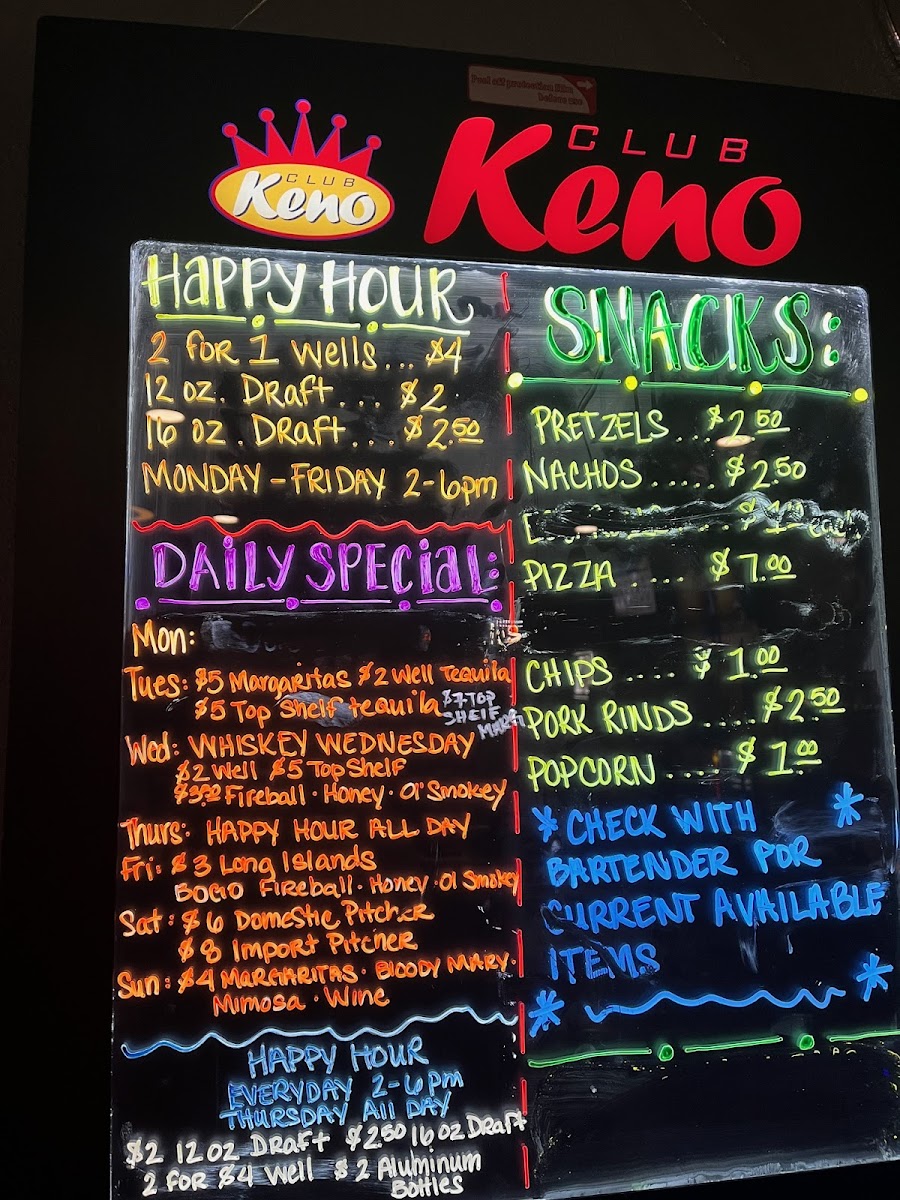 Peel off protection film
before use
CLUB
Keno
CLUB
Keno
HAPPY HOUR
2 for 1 wells... $4
12 oz. Draft... $2
16 oz. Draft... $2.50
MONDAY - FRIDAY 2-6pm
DAILY SPECIAL:
Mon:
Tues: $5 Margaritas $2 Well Tequila
$5 Top Shelf tequila
$7 TOP
SHELF
MARG
Wed: WHISKEY WEDNESDAY
$2 Well $5 Top Shelf
Fireball · Honey · Ol' Smokey
Thurs: HAPPY HOUR ALL DAY
Fri: $3 Long Islands
BOGO Fireball · Honey · Ol Smokey
Sat: $6 Domestic Pitcher
$8 Import Pitcher
Sun: $4 MARGARITAS · BLOODY MARY ·
Mimosa · Wine
HAPPY HOUR
EVERYDAY 2-6pm
THURSDAY All DAY
$2 12 oz Draft $2.50 16 oz Draft
2 for $4 Well $2 Aluminum
Bottles
SNACKS:
PRETZELS... $2.50
NACHOS..... $2.50
PIZZA .... $7.00
CHIPS .... $1.00
PORK RINDS ....$2.50
POPCORN.... $1.00
* CHECK WITH *
BARTENDER FOR
CURRENT AVAILABLE
ITEMS
* *